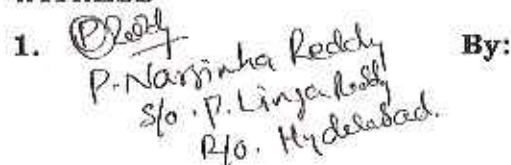 1. PReddy By:
P. Narsinha Reddy
S/o. P. Linga Reddy
R/o. Hyderabad.